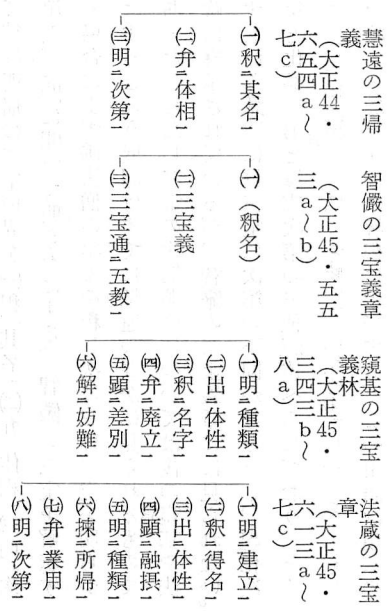 慧遠の三帰
義
（大正44・
六五四a〜
七c）
㈠釈㆓其名㆒
㈡弁㆓体相㆒
㈢明㆓次第㆒
智儼の三宝義章
（大正45・五五
三a〜b）
㈠（釈名）
㈡三宝義
㈢三宝通㆓五教㆒
窺基の三宝
義林
（大正45・
三四三b〜
八a）
㈠明㆓種類㆒
㈡出㆓体性㆒
㈢釈㆓名字㆒
㈣弁㆓廃立㆒
㈤顕㆓差別㆒
㈥解㆓妨難㆒
法蔵の三宝
章
（大正45・
六一三a〜
七c）
㈠明㆓建立㆒
㈡釈㆓得名㆒
㈢出㆓体性㆒
㈣顕㆓融摂㆒
㈤明㆓種類㆒
㈥揀㆓所帰㆒
㈦弁㆓業用㆒
㈧明㆓次第㆒